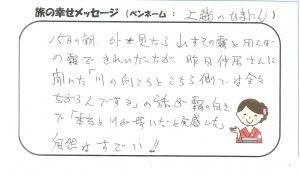 旅の幸せメッセージ (ペンネーム : 上越のひきにい)
15日の朝、外を見たら山すその霧と田んぼ
の霧できれいでしたが 昨日仲居さんに
聞いた「川の向こうとこちら側では全々
ちがうんですよ」の話が霧の向き
で「本当と川が
と実感した」
自然はすごい!!